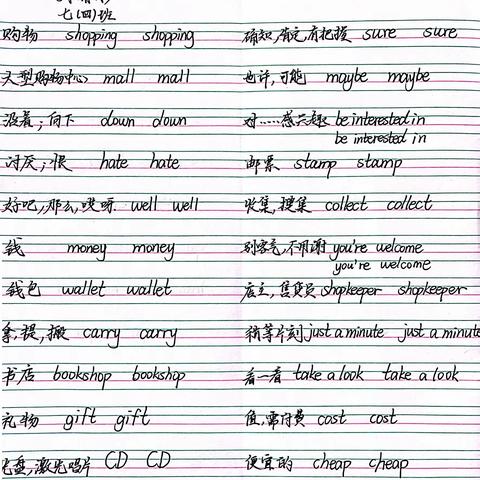 七(四)班
购物 shopping shopping 确知,肯定,有把握 sure sure
大型购物中心 mall mall 也许,可能 maybe maybe
沿着;向下 down down 对……感兴趣 be interested in
be interested in
讨厌;恨 hate hate 邮票 stamp stamp
好吧,那么,哎呀 well well 收集,搜集 collect collect
钱 money money 别客气,不用谢 you're welcome
you're welcome
钱包 wallet wallet 店主,售货员 shopkeeper shopkeeper
拿,提,搬 carry carry 稍等片刻 just a minute just a minute
书店 bookshop bookshop 看一看 take a look take a look
礼物 gift gift 值,需付费 cost cost
光盘,激光唱片 CD CD 便宜的 cheap cheap